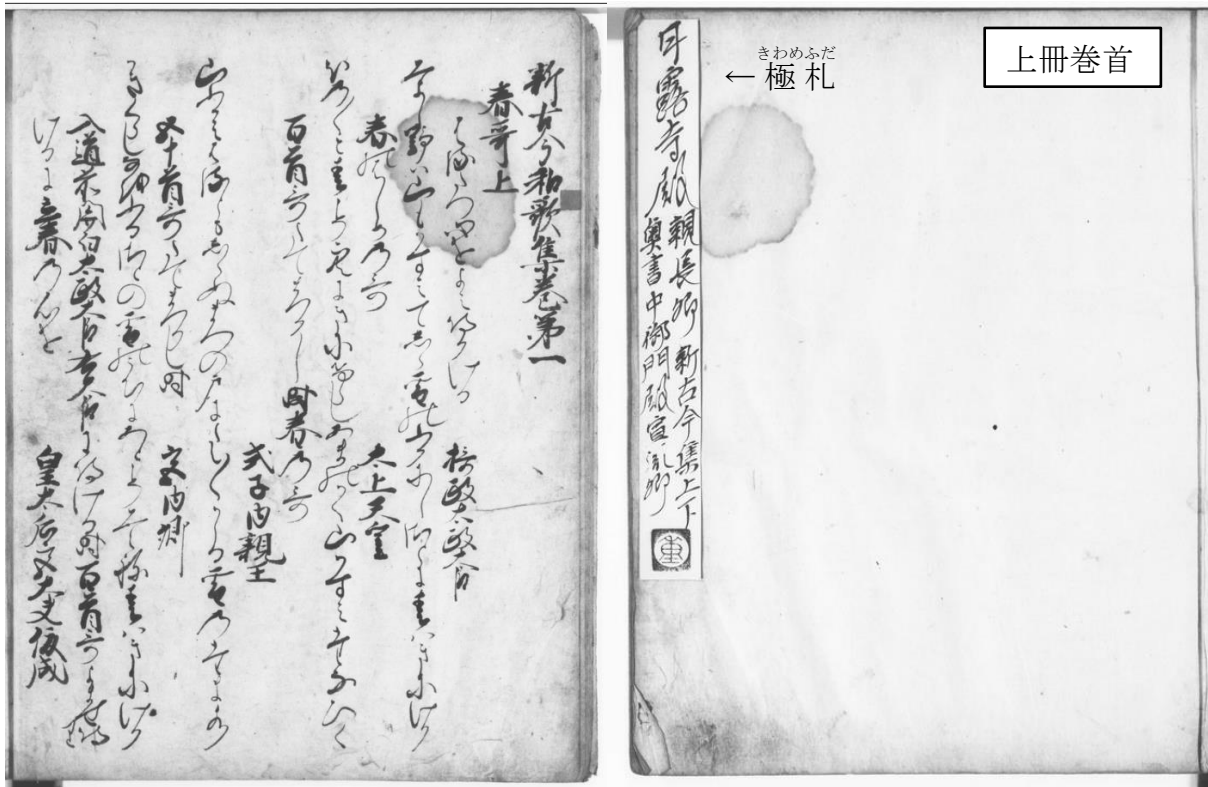 上冊巻首
きわめふだ
←極札
甘露寺殿親長卿 新古今集上下
奥書中御門殿宣胤卿
重
新古今和歌集巻第一
春哥上
はるたつ心をよみ侍ける
摂政太政大臣
みよし野は山もかすみてしら雪のふりにし里に春はきにけり
春のはしめの哥
太上天皇
ほの〱と春こそ空にきにけらしあまのかく山かすみたなひく
百首哥たてまつりし時春乃哥
式子内親王
山ふかみ春ともしらぬまつの戸にたえ〱かゝる雪乃玉みつ
五十首哥たてまつりし時
宮内卿
かきくらし猶ふる さとの雪のうちにあとこそ見えね春はきにけり
入道前関白太政大臣右大臣に侍ける時百首哥よませ侍
けるに立春乃心を
皇太后宮大夫俊成